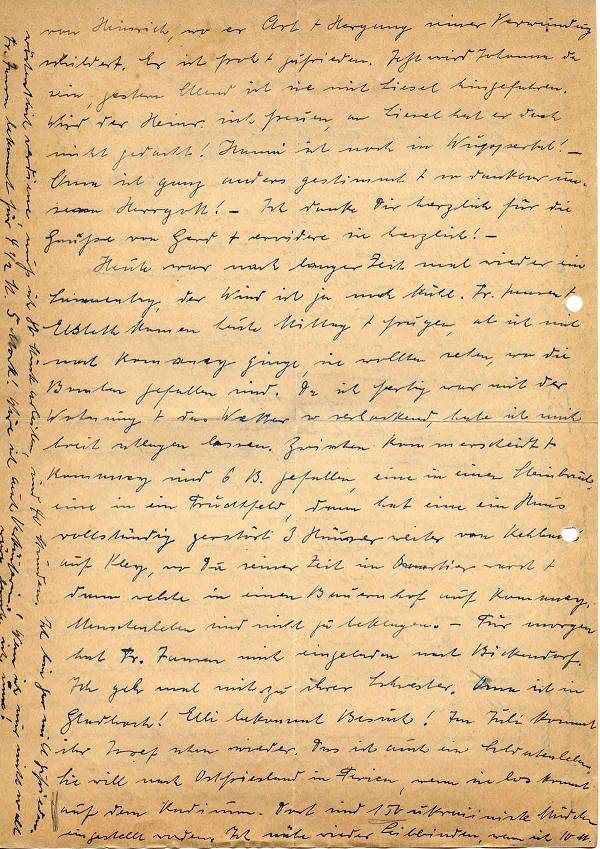 von Heinrich, wo er Art + Hergang seiner Verwundung
schildert. Er ist froh + zufrieden. Jetzt wird Johanna da
sein, gestern Abend ist sie mit Liesel hingefahren.
Wird der Heinr. sich freuen, an Liesel hat er doch
nicht gedacht! Hanni ist noch in Wuppertal! –
Anna ist ganz anders gestimmt + so dankbar un-
serm Herrgott! – Ich danke Dir herzlich für die
Grüße von Gerd + erwidere sie herzlich! –
Heute war nach langer Zeit mal wieder ein
Sonnentag, der Wind ist ja noch kühl. Fr. Jansen +
Elsbeth kamen heute Mittag + frugen, ob ich mit
nach Rommerey ginge, sie wollten sehen, wo die
Bomben gefallen sind. Da ich fertig war mit der
Wohnung + das Wetter so verlockend, habe ich mich
breit schlagen lassen. Zwischen Kommerscheidt +
sind 6 B. gefallen, eine in einen Steinbruch,
eine in ein Fruchtfeld, dann hat eine ein Haus
vollständig zerstört 3 Häuser weiter von
auf Kley, wo Du seiner Zeit im Quartier warst +
dann welche in einen Bauernhof auf
Menschenleben sind nicht zu beklagen. – Für morgen
hat Fr. Jansen mich eingeladen nach Bickendorf.
Ich geh mal mit zu ihrer Schwester. Anna ist in
Gladbach! Elli bekommt Besuch! Im Juli kommt
ihr Josef schon wieder. Das ist auch ein Soldatenleben.
Sie will nach Ostfriesland in Ferien, wenn sie los kommt
auf dem Stadium. Dort sind 150 ukrainische Mädchen
eingestellt worden. Ich nähe wieder Leibbinden, wenn ich 10 M.
verdiene muß ich 80 Stück arbeiten, sind 41 Stunden. Ich bin gar nicht zufrieden.
Fr. Jansen bekommt für 4 1/2 St. 5 Mark!